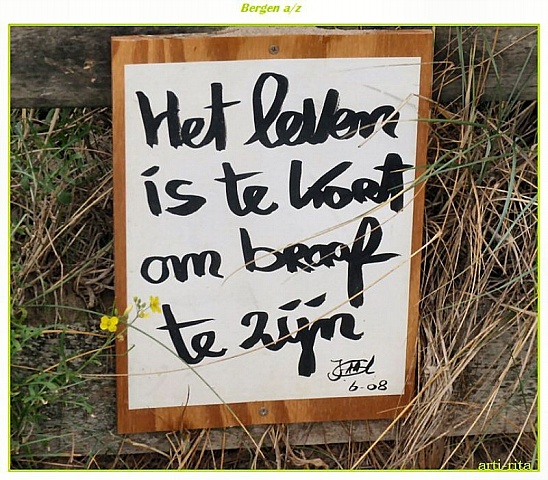 Bergen a/z
Het leven
is te kort
om braaf
te zijn
6-08
arti-rita